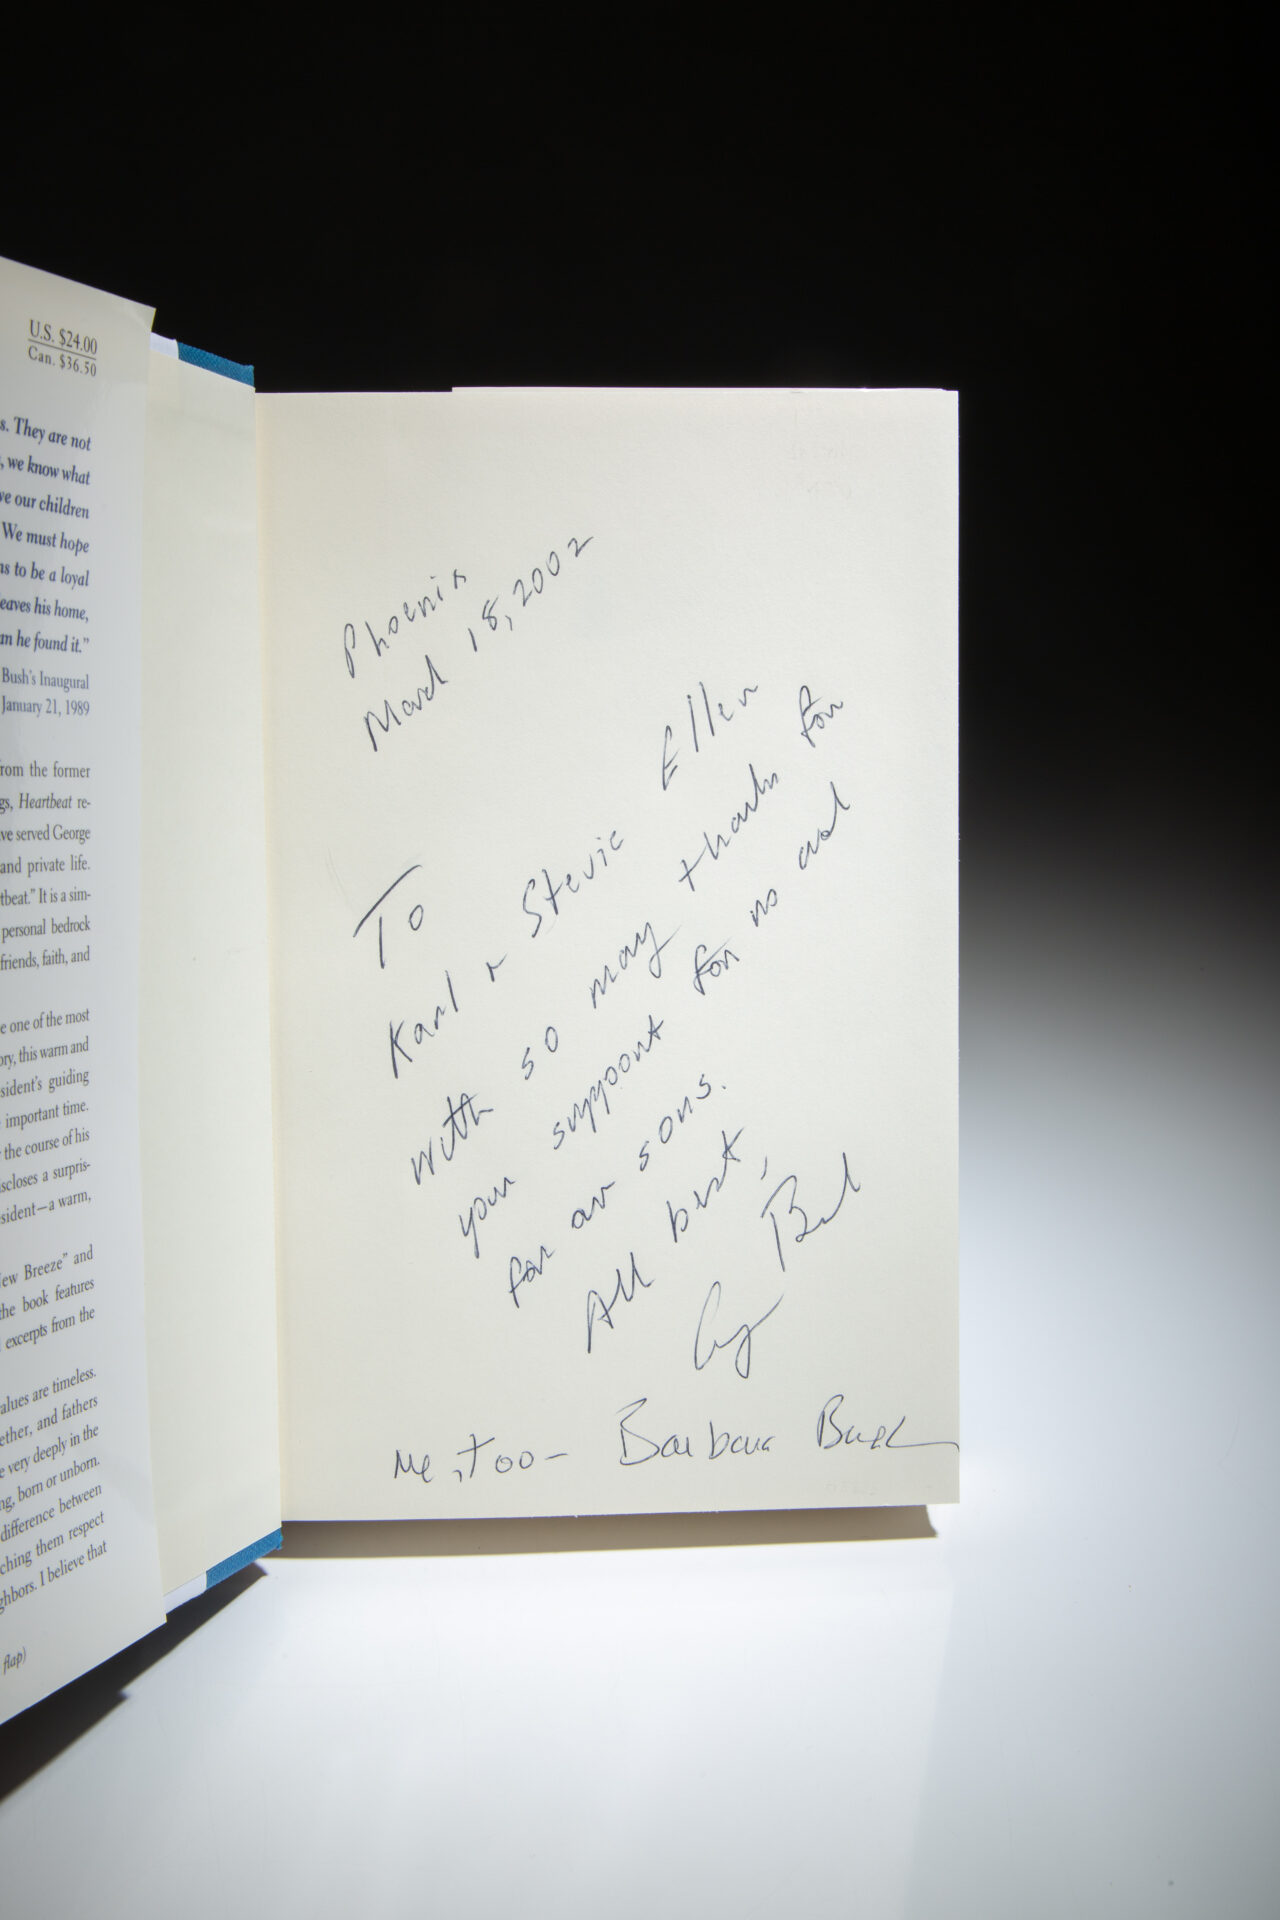 U.S. $24.00
Can. $36.50
s. They are not
, we know what
ve our children
We must hope
ns to be a loyal
eaves his home,
an he found it."
Bush's Inaugural
January 21, 1989
rom the former
gs, Heartbeat re-
ve served George
and private life.
tbeat." It is a sim-
personal bedrock
friends, faith, and
e one of the most
ory, this warm and
sident's guiding
important time.
the course of his
scloses a surpris-
sident—a warm,
ew Breeze" and
the book features
excerpts from the
alues are timeless.
ether, and fathers
e very deeply in the
ng, born or unborn.
difference between
ching them respect
ghbors. I believe that
flap)
Phoenix
March 18, 2002
To
Karl & Stevie Ellen
With so many thanks for
your support for us and
for our sons.
All best,
Bush
Me, Too - Barbara Bush